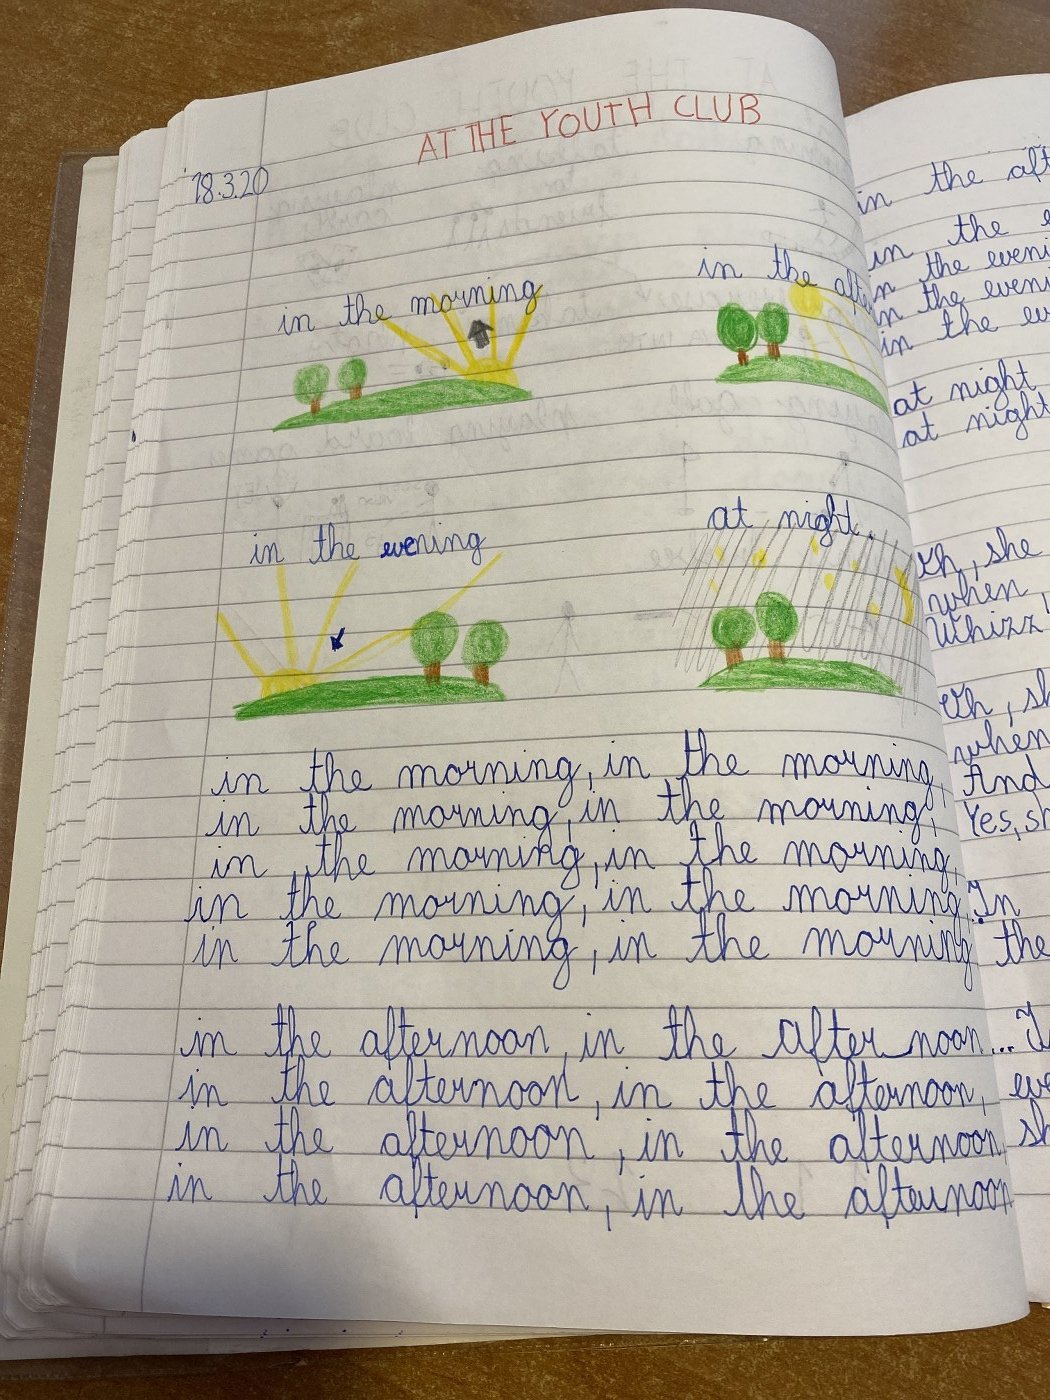 AT THE YOUTH CLUB
18.3.20
in the morning
in the
in the evening
at night.
in the morning, in the morning,
in the morning, in the morning,
in the morning, in the morning,
in the morning, in the morning,
in the morning, in the morning
in the afternoon, in the after noon...
in the afternoon, in the afternoon,
in the afternoon, in the afternoon
in the afternoon, in the afternoon
in the
in the
in the
in the
in the
at night
at night
she
when,
Whizz
when
And
Yes,
In
the